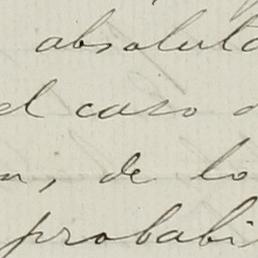 absoluta
el caso d
n, de lo
probabi